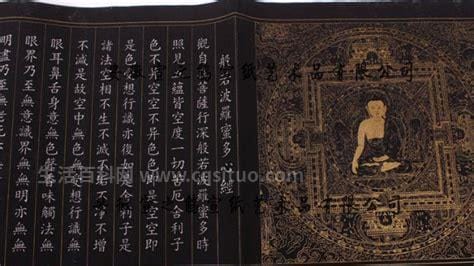 般若波羅蜜多心經
觀自在菩薩行深般若波羅蜜多時
照見五蘊皆空度一切苦厄舍利子
色不異空空不異色色即是空空即
是色受想行識亦復如是舍利子是
諸法空相不生不滅不垢不淨不增
不減是故空中無色無受想行識無
眼耳鼻舌身意無色聲香味觸法無
眼界乃至無意識界無無明亦無無
明盡乃至無老死
纸艺术品有限公司
生活百科网 www.cgsituo.com
纸艺术品有限公司